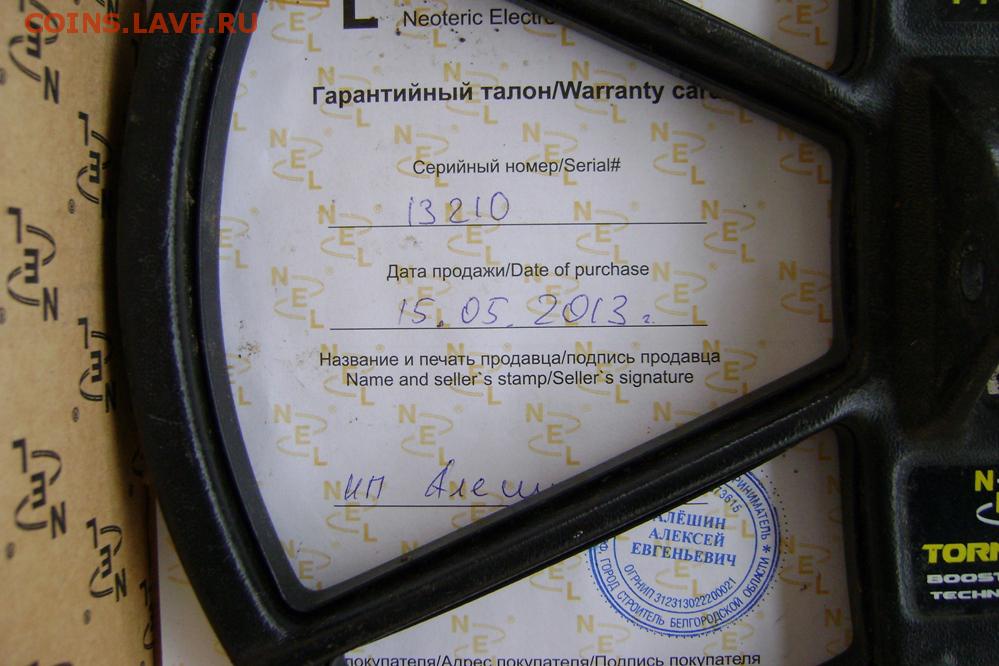 COINS.LAVE.RU
Neoteric Electro
Гарантийный талон/Warranty card
Серийный номер/Serial#
13210
Дата продажи/Date of purchase
15.05.2013г.
Название и печать продавца/подпись продавца
Name and seller`s stamp/Seller`s signature
ИП Алеши
АЛЁШИН
АЛЕКСЕЙ
ЕВГЕНЬЕВИЧ
ОГРНИП 312313022200021
ГОРОД СТРОИТЕЛЬ БЕЛГОРОДСКОЙ ОБЛАСТИ
NEL
TORN
BOOST
TECHN
покупателя/Адрес покупателя/Подпись покупателя